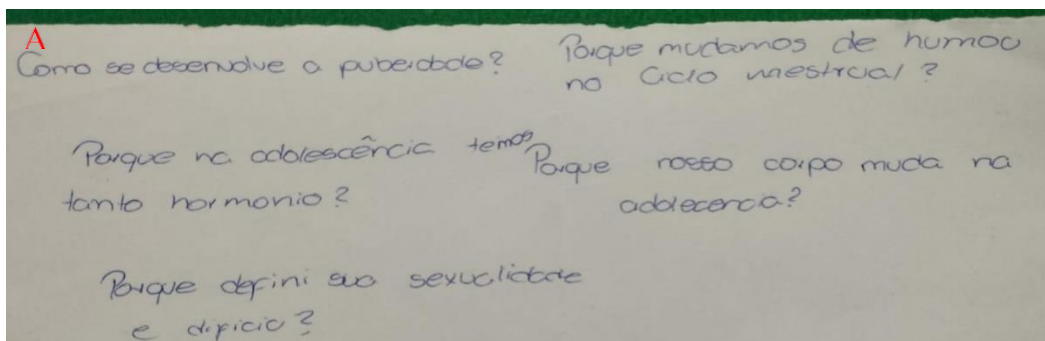 A
Como se desenvolve a puberdade?
Porque mudamos de humoo
no Ciclo mestrual?
Porque na adolescência temos
tanto hormonio?
Porque nosso corpo muda na
adolecencia?
Porque defini sua sexualidade
e dificio?